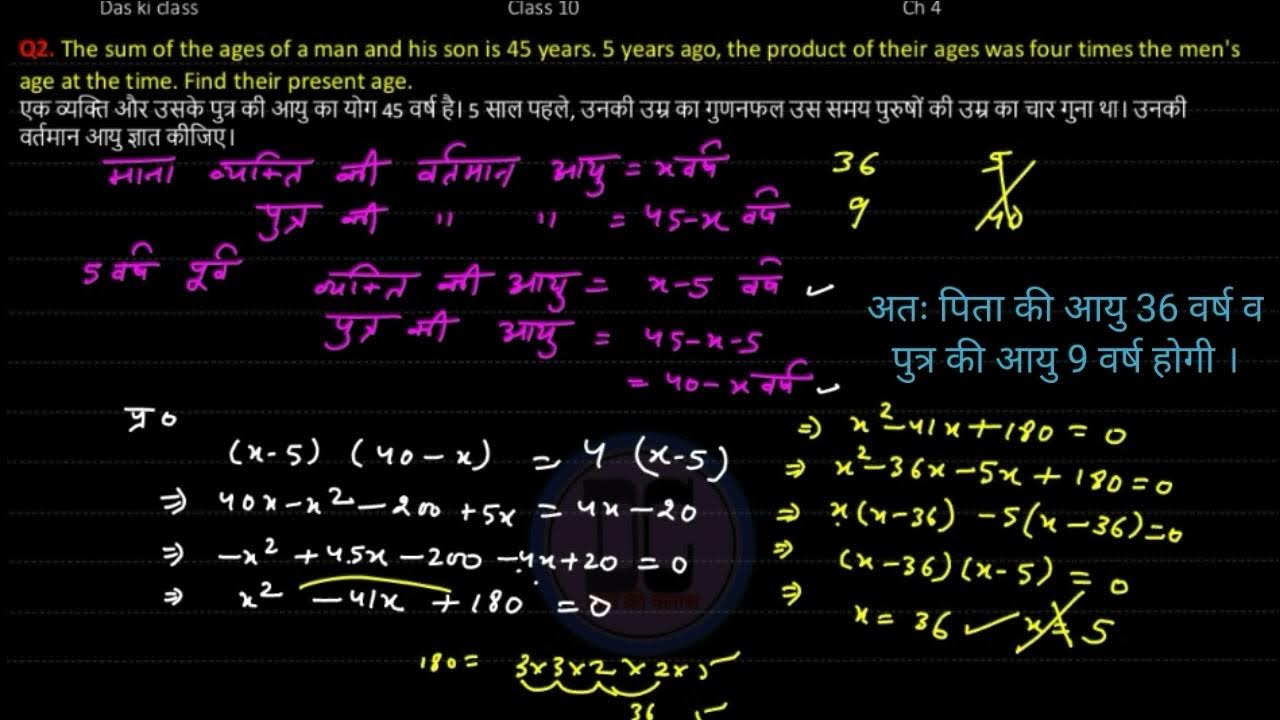 Das ki class Class 10 Ch 4
Q2. The sum of the ages of a man and his son is 45 years. 5 years ago, the product of their ages was four times the men's
age at the time. Find their present age.
एक व्यक्ति और उसके पुत्र की आयु का योग 45 वर्ष है। 5 साल पहले, उनकी उम्र का गुणनफल उस समय पुरुषों की उम्र का चार गुना था। उनकी
वर्तमान आयु ज्ञात कीजिए।
माना व्यक्ति की वर्तमान आयु = x वर्ष
पुत्र की " " = 45-x वर्ष
36 5
9 40
5 वर्ष पूर्व व्यक्ति की आयु = x-5 वर्ष ✓
पुत्र की आयु = 45-x-5
= 40-x वर्ष ✓
अतः पिता की आयु 36 वर्ष व
पुत्र की आयु 9 वर्ष होगी ।
प्र०
(x-5) (40-x) = 4 (x-5)
⇒ 40x-x² -200 +5x = 4x-20
⇒ -x² +45x -200 -4x+20 = 0
⇒ x² -41x +180 = 0
180 = 3x3x2x2x5 ✓
36 5 ✓
⇒ x²-41x+180 = 0
⇒ x²-36x-5x+180=0
⇒ x(x-36) -5(x-36)=0
⇒ (x-36)(x-5) = 0
⇒ x = 36 ✓ x = 5